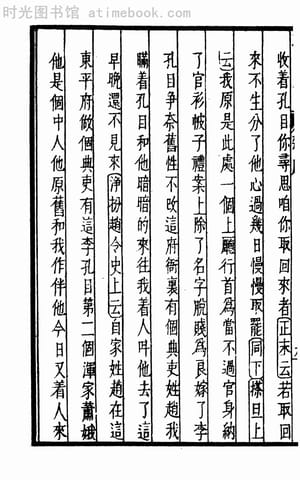 时光图书馆——timebook.cn
收着孔目你尋思咱你取回來者正末云若取回
來不生分了他心過幾日慢慢取罷同下搽旦上
云我原是此處一個上廳行首為當不過官身納
了官衫帔子禮案上除了名字脫賤為良嫁了李
孔目爭奈舊性不改這府衙裏有個典吏姓趙我
瞞着孔目和他暗暗的來往我着人叫他去了這
早晚還不見來淨扮趙令史上云自家姓趙在這
東平府做個典吏有這李孔目第二個渾家蕭娥
他是個中人他原舊和我作伴他今日又着人來